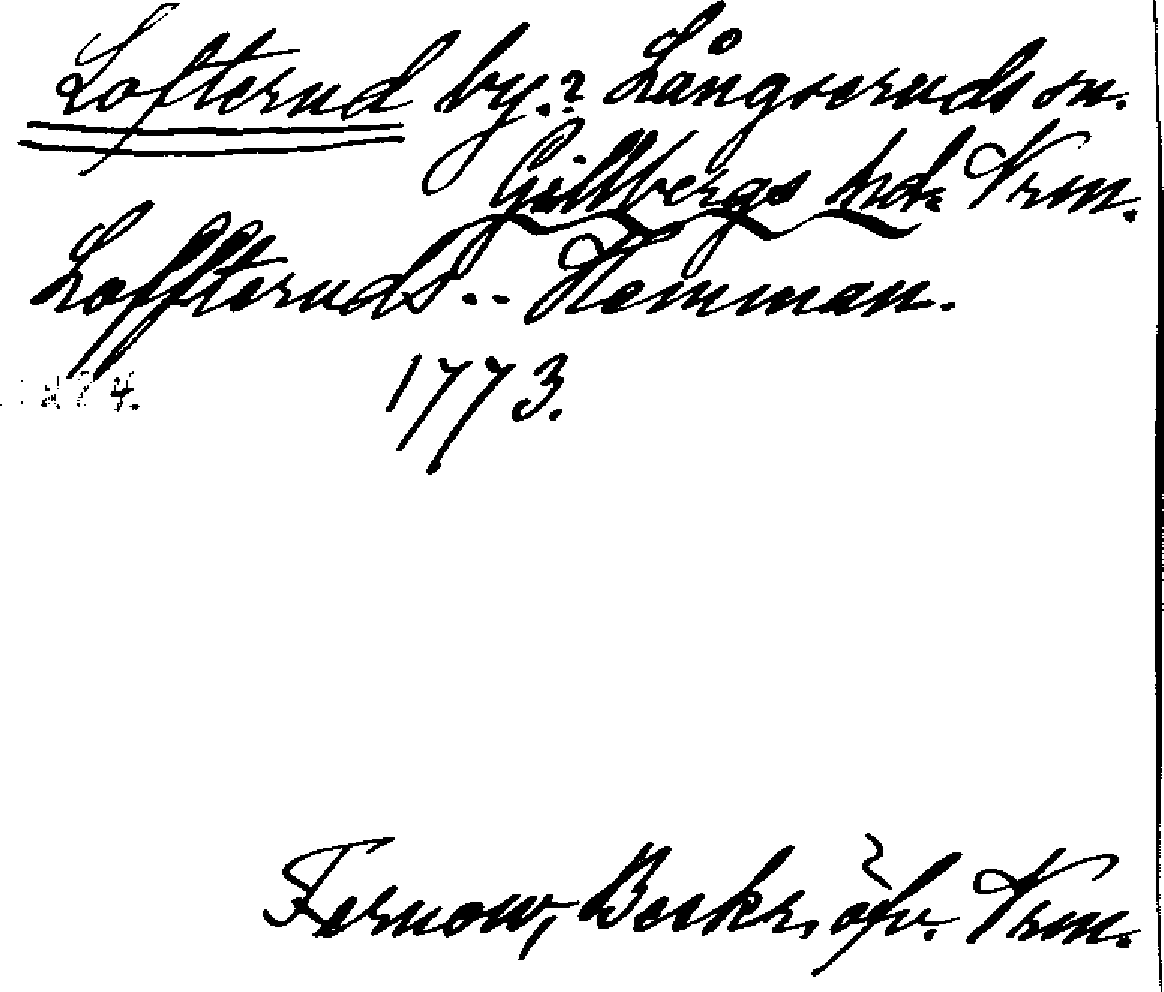 Lofterud by.? Långseruds sn.
Gillbergs hd. Vrm.
Loffteruds-- Hemman.
1773.
Fernow, Beskr. öfv. Vrm.